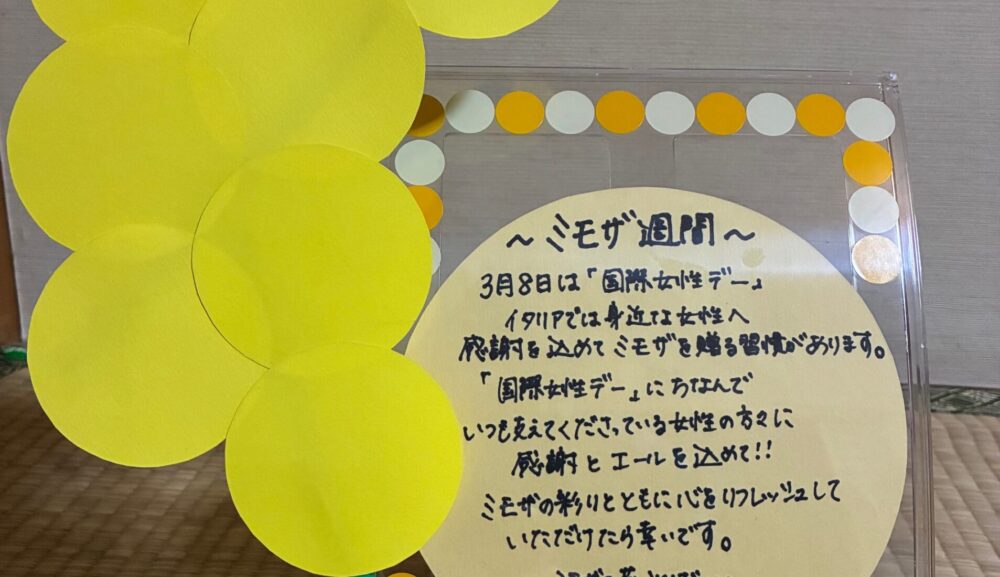 ～ミモザ週間～
3月8日は「国際女性デー」
イタリアでは身近な女性へ
感謝を込めてミモザを贈る習慣があります。
「国際女性デー」にちなんで
いつも支えてくださっている女性の方々に
感謝とエールを込めて!!
ミモザの彩りとともに心をリフレッシュして
いただけたら幸いです。